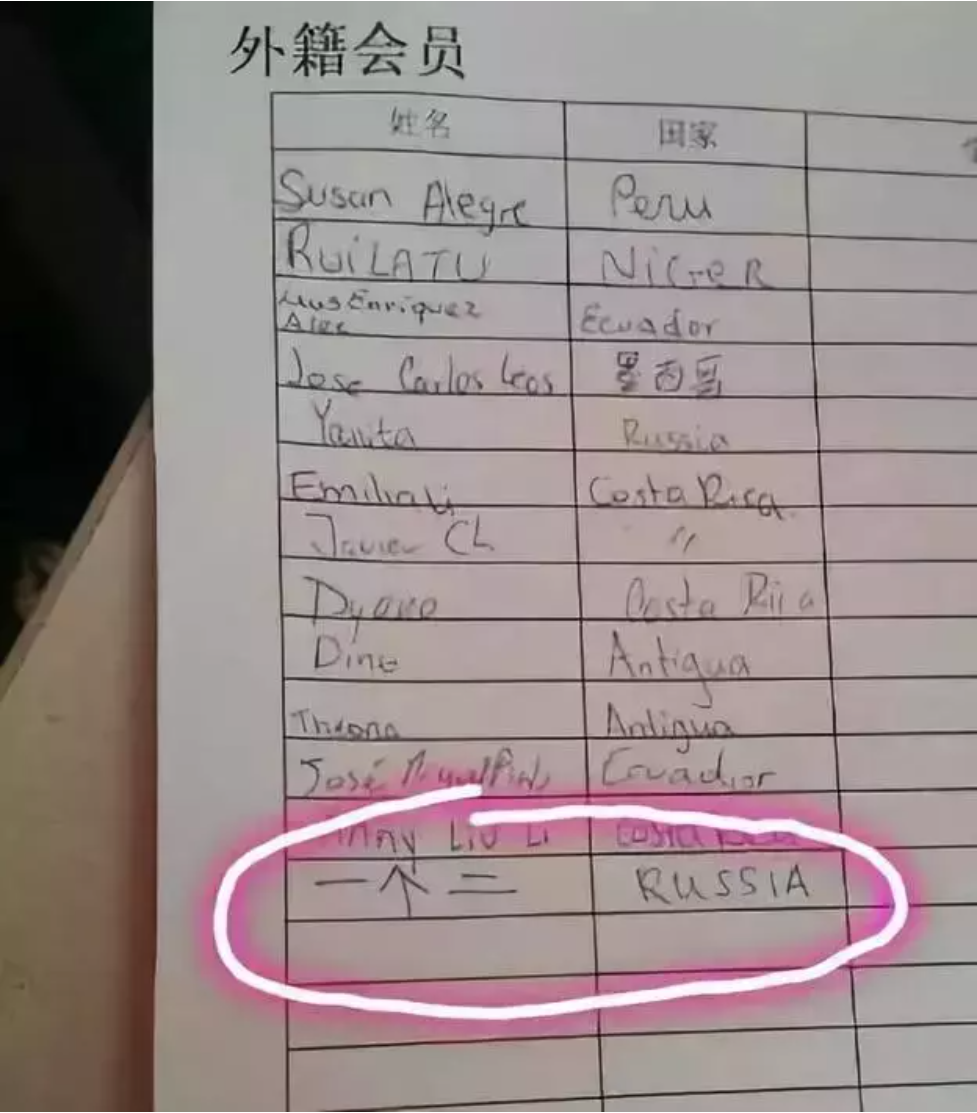 外籍会员
姓名 国家
Susan Alegre Peru
RUiLATU NiGeR
Enriquez Ecuador
Alec
Jose Carlos Leos 墨西哥
Yanita Russia
Emiliali Costa Rica.
Javier CL 〃
Costa Rica
Dine Antigua
Theona Antigua
José Ecuador
Liu Li Costa Rica
一个二 RUSSIA